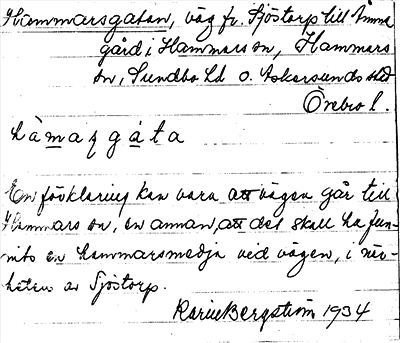 Hammarsgatan, väg fr. Sjöstorp till Ämme
gård i Hammars sn, Hammars
sn, Sundbo hd o. Askersunds stad
Örebro l.
hàmaṣgáta
En förklaring kan vara att vägen går till
Hammars sn, en annan, att det skall ha fun-
nits en hammarsmedja vid vägen, i när-
heten av Sjöstorp.
Karin Bergström 1934